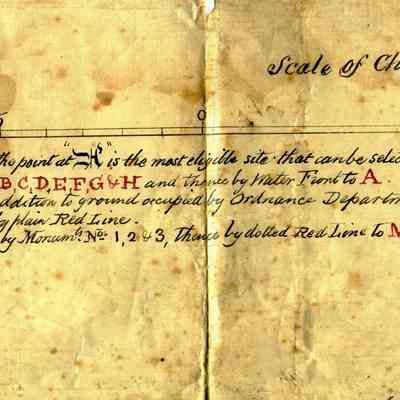 Scale of Ch
0
the point at "R" is the most eligible site that can be selec
B, C, D, E, F, G & H and thence by Water Front to A.
addition to ground occupied by Ordnance Departm
by plain Red Line.
by Monumts. Nos. 1, 2 & 3, thence by dotted Red Line to M